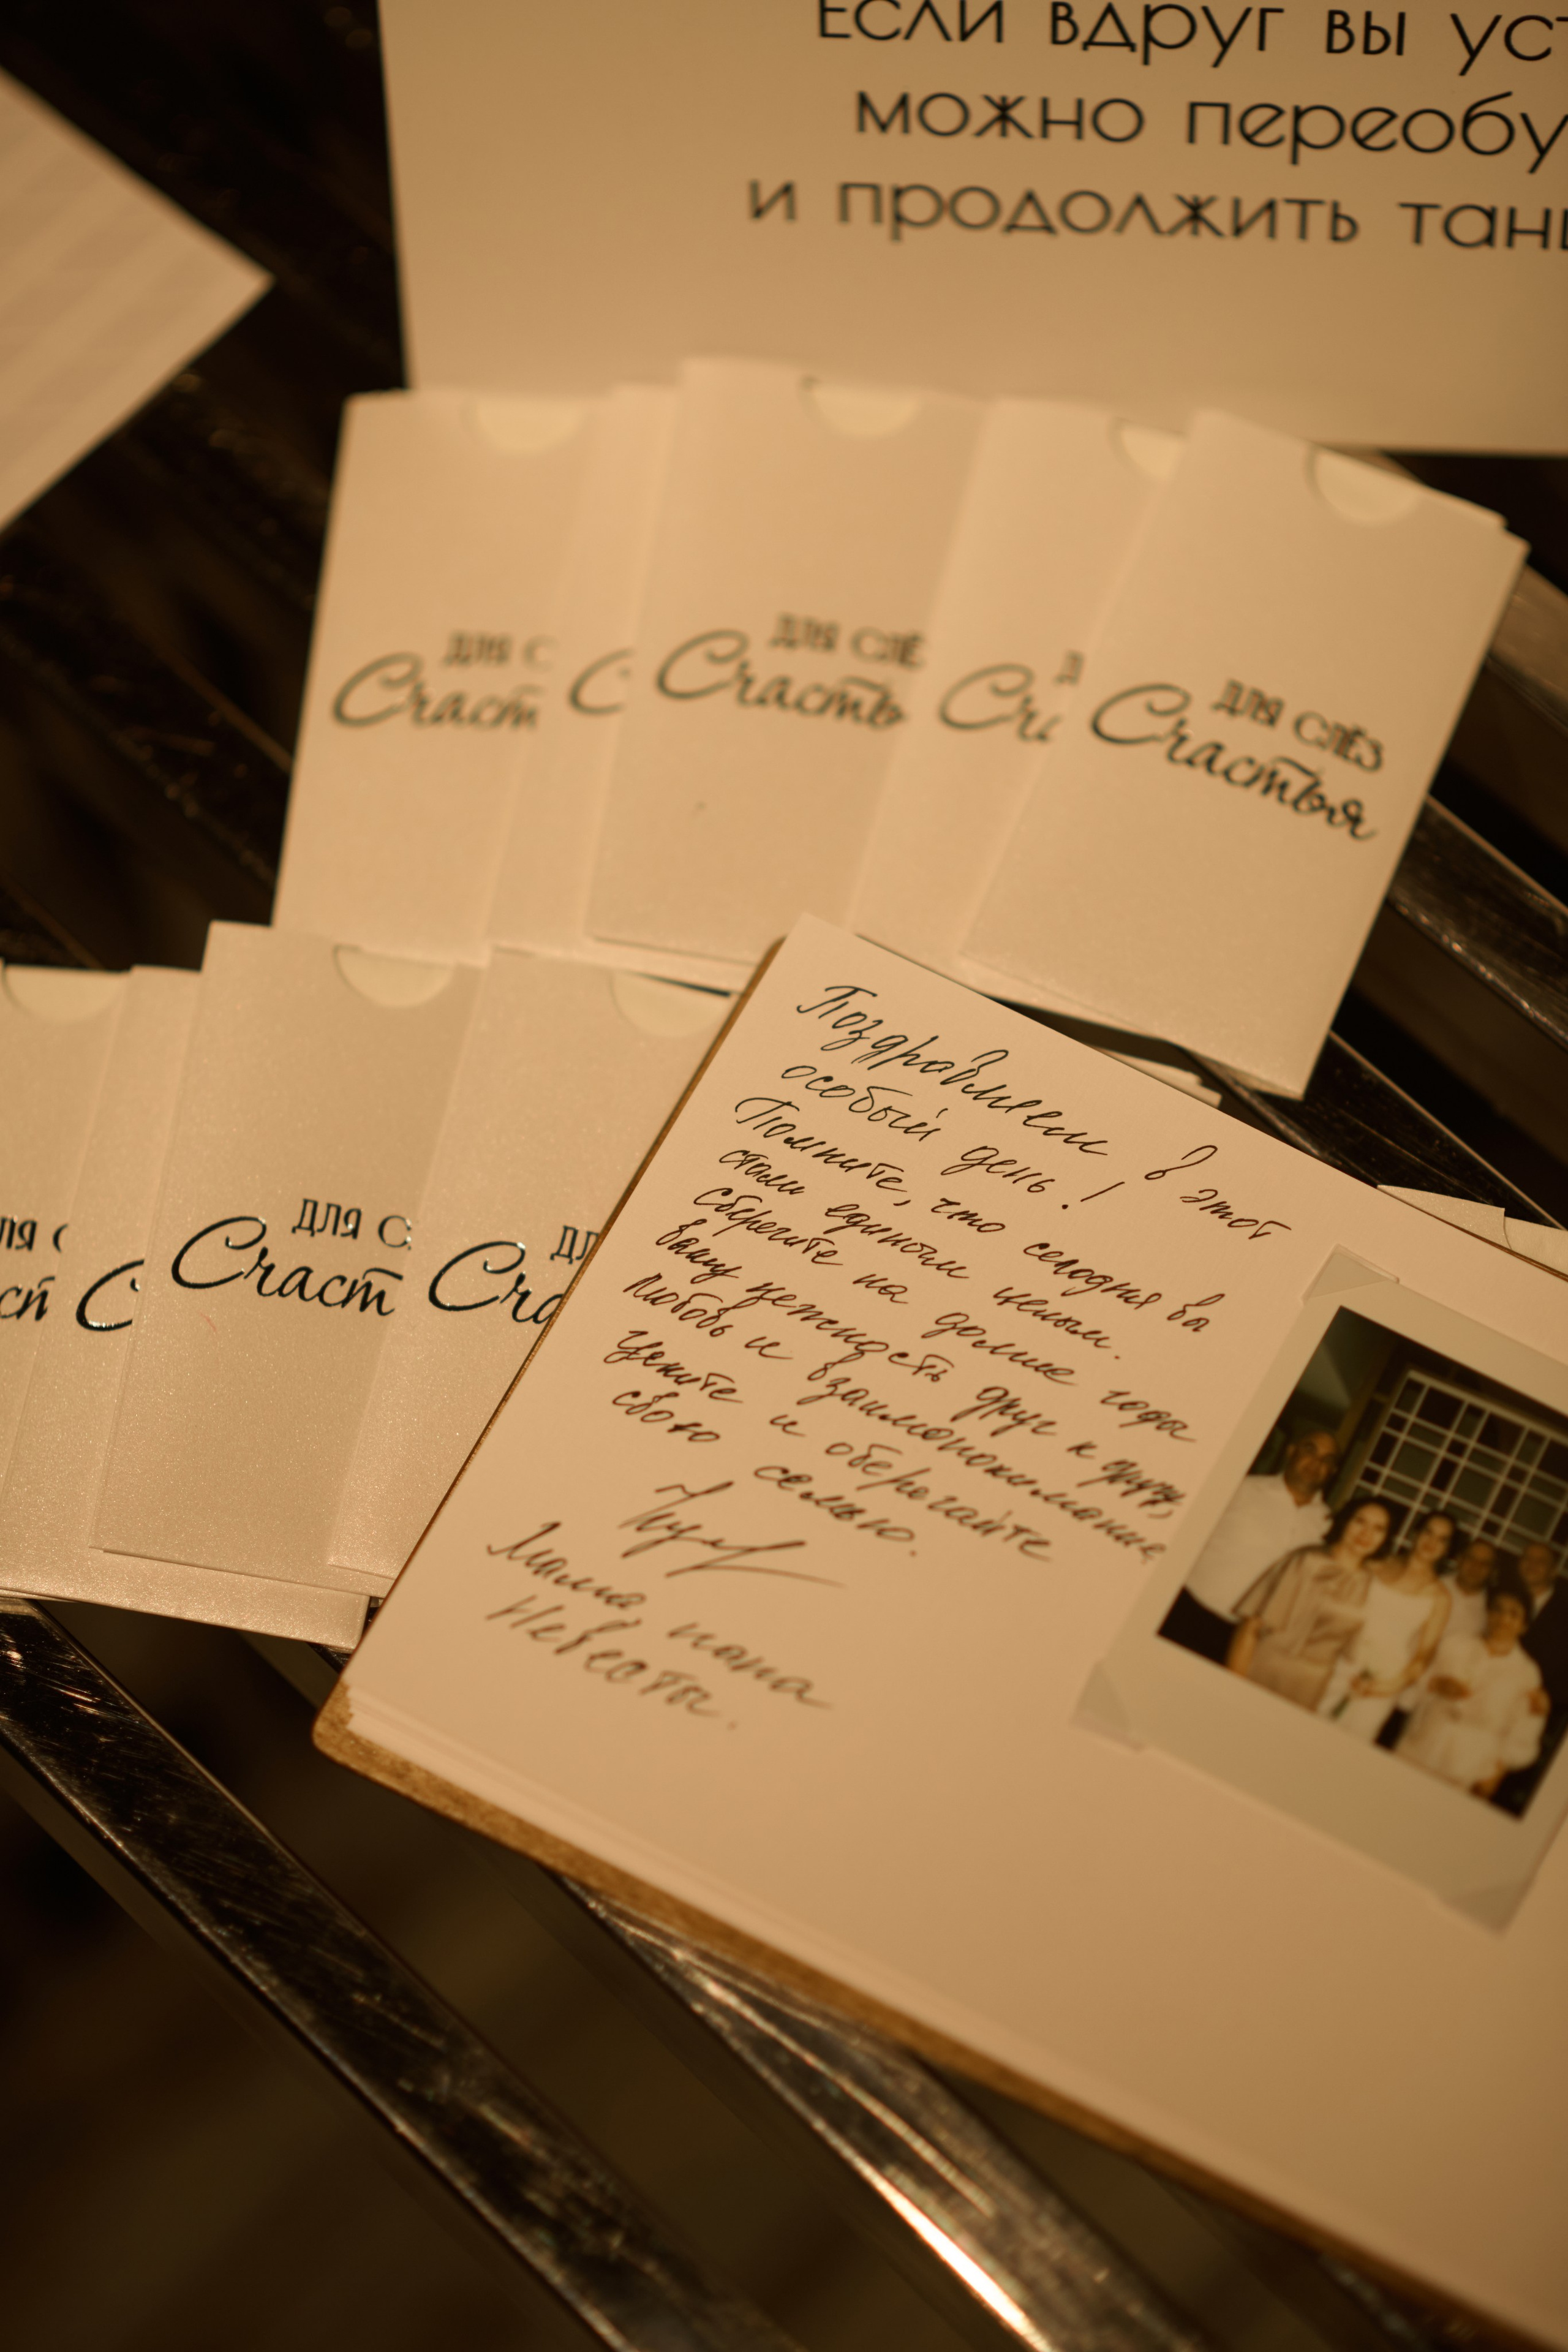 Если вдруг вы уст
можно переобу
и продолжить танц
для с
Счаст
С
для слё
Счасть
д
Сча
для слёз
Счастья
для с
Счаст
С
для с
Счаст
дл
Сча
Поздравляем в этот
особый день!
Помните, что сегодня вы
стали единым целым.
Сберегите на долгие года
вашу нежность друг к другу,
Любовь и взаимопонимание,
Цените и оберегайте
свою семью.
Мама, папа
Невесты.